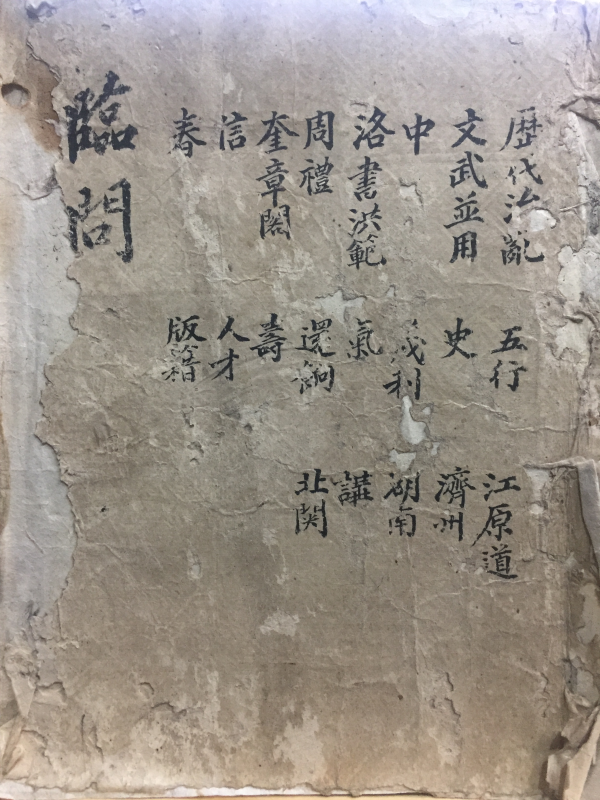 臨問
歷代治亂
文武並用
中
洛書洪範
周禮
奎章閣
信
春
五行
史
義利
氣
還餉
壽
人才
版籍
江原道
濟州
湖南
講
北関